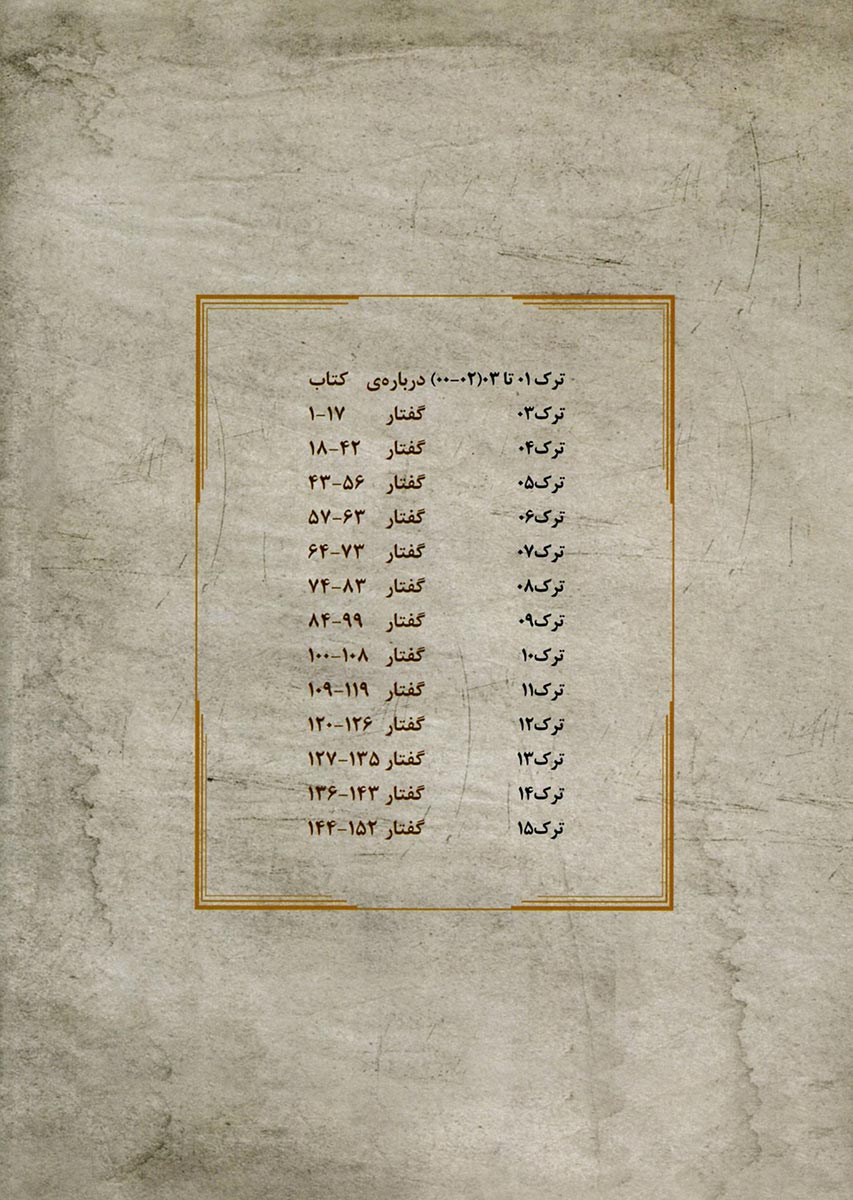 ترک ۰۱ تا ۰۳(۰۲-۰۰) درباره‌ی کتاب
ترک۰۳ گفتار ۱۷-۱
ترک۰۴ گفتار ۴۲-۱۸
ترک۰۵ گفتار ۵۶-۴۳
ترک۰۶ گفتار ۶۳-۵۷
ترک۰۷ گفتار ۷۳-۶۴
ترک۰۸ گفتار ۸۳-۷۴
ترک۰۹ گفتار ۹۹-۸۴
ترک۱۰ گفتار ۱۰۸-۱۰۰
ترک۱۱ گفتار ۱۱۹-۱۰۹
ترک۱۲ گفتار ۱۲۶-۱۲۰
ترک۱۳ گفتار ۱۳۵-۱۲۷
ترک۱۴ گفتار ۱۴۳-۱۳۶
ترک۱۵ گفتار ۱۵۲-۱۴۴